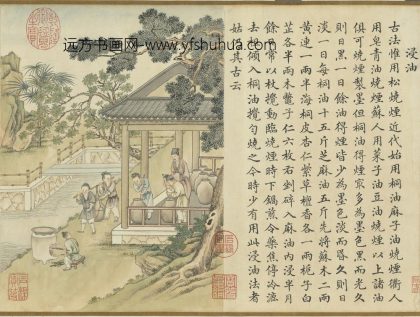 远方书画网-www.yfshuhua.com
浸油
古法惟用松燒煙近代始用桐油麻子油燒煙衢人
用皂青油燒煙蘇人用菜子油豆油燒煙以上諸油
俱可燒煙製墨但桐油得煙最多為墨色黑而光久
則日黑一日餘油得煙皆少為墨色淡而昏久則日
淡一日每桐油十五斤芝麻油五斤先將蘇木二兩
黃連一兩半海桐皮杏仁紫草檀香各一兩梔子白
芷各半兩木鱉子仁六枚右剉碎入麻油內浸半月
餘日常以杖攪動臨燒煙時下鍋煎令藥焦停冷漉
去柤傾入桐油攪勻燒之今時少有用此浸油法者
姑存其古云